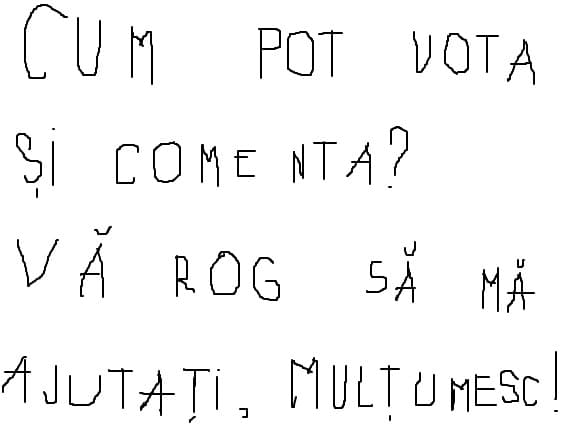 CUM POT VOTA
ȘI COMENTA?
VĂ ROG SĂ MĂ
AJUTAȚI, MULȚUMESC!